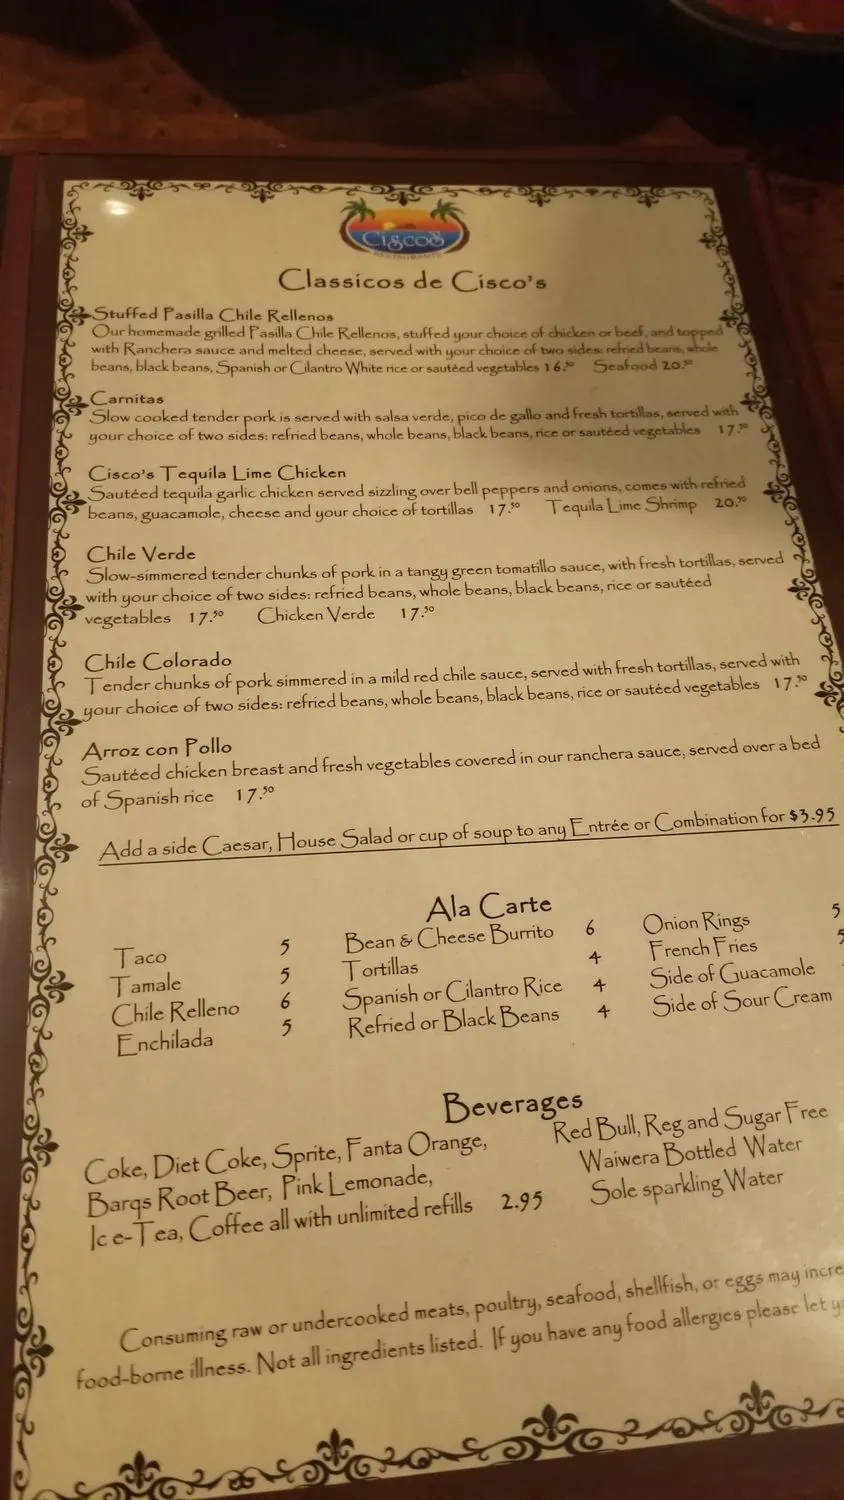 CISCOS
RESTAURANTS
Classicos de Cisco's
Stuffed Pasilla Chile Rellenos
Our homemade grilled Pasilla Chile Rellenos, stuffed your choice of chicken or beef, and topped
with Ranchera sauce and melted cheese, served with your choice of two sides: refried beans, whole
beans, black beans, Spanish or Cilantro White rice or sautéed vegetables 16.50 Seafood 20.50
Carnitas
Slow cooked tender pork is served with salsa verde, pico de gallo and fresh tortillas, served with
your choice of two sides: refried beans, whole beans, black beans, rice or sautéed vegetables 17.50
Cisco's Tequila Lime Chicken
Sautéed tequila garlic chicken served sizzling over bell peppers and onions, comes with refried
beans, guacamole, cheese and your choice of tortillas 17.50 Tequila Lime Shrimp 20.50
Chile Verde
Slow-simmered tender chunks of pork in a tangy green tomatillo sauce, with fresh tortillas, served
with your choice of two sides: refried beans, whole beans, black beans, rice or sautéed
vegetables 17.50 Chicken Verde 17.50
Chile Colorado
Tender chunks of pork simmered in a mild red chile sauce, served with fresh tortillas, served with
your choice of two sides: refried beans, whole beans, black beans, rice or sautéed vegetables 17.50
Arroz con Pollo
Sautéed chicken breast and fresh vegetables covered in our ranchera sauce, served over a bed
of Spanish rice 17.50
Add a side Caesar, House Salad or cup of soup to any Entrée or Combination for $3.95
Ala Carte
Taco 5
Tamale 5
Chile Relleno 6
Enchilada 5
Bean & Cheese Burrito 6
Tortillas 4
Spanish or Cilantro Rice 4
Refried or Black Beans 4
Onion Rings 5
French Fries 5
Side of Guacamole
Side of Sour Cream
Beverages
Coke, Diet Coke, Sprite, Fanta Orange,
Barqs Root Beer, Pink Lemonade,
Ice-Tea, Coffee all with unlimited refills 2.95
Red Bull, Reg and Sugar Free
Waiwera Bottled Water
Sole sparkling Water
Consuming raw or undercooked meats, poultry, seafood, shellfish, or eggs may incre
food-borne illness. Not all ingredients listed. If you have any food allergies please let y